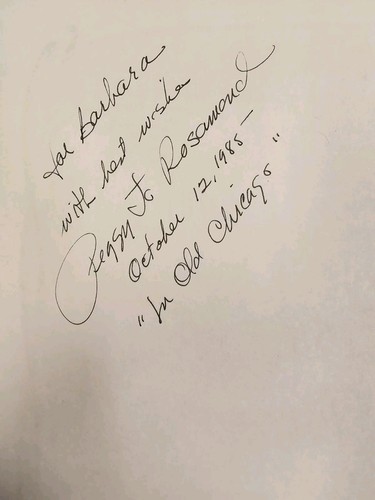 For Barbara
with best wishes
Peggy Jo Rosamond
October 12, 1985 -
"In Old Chicago"